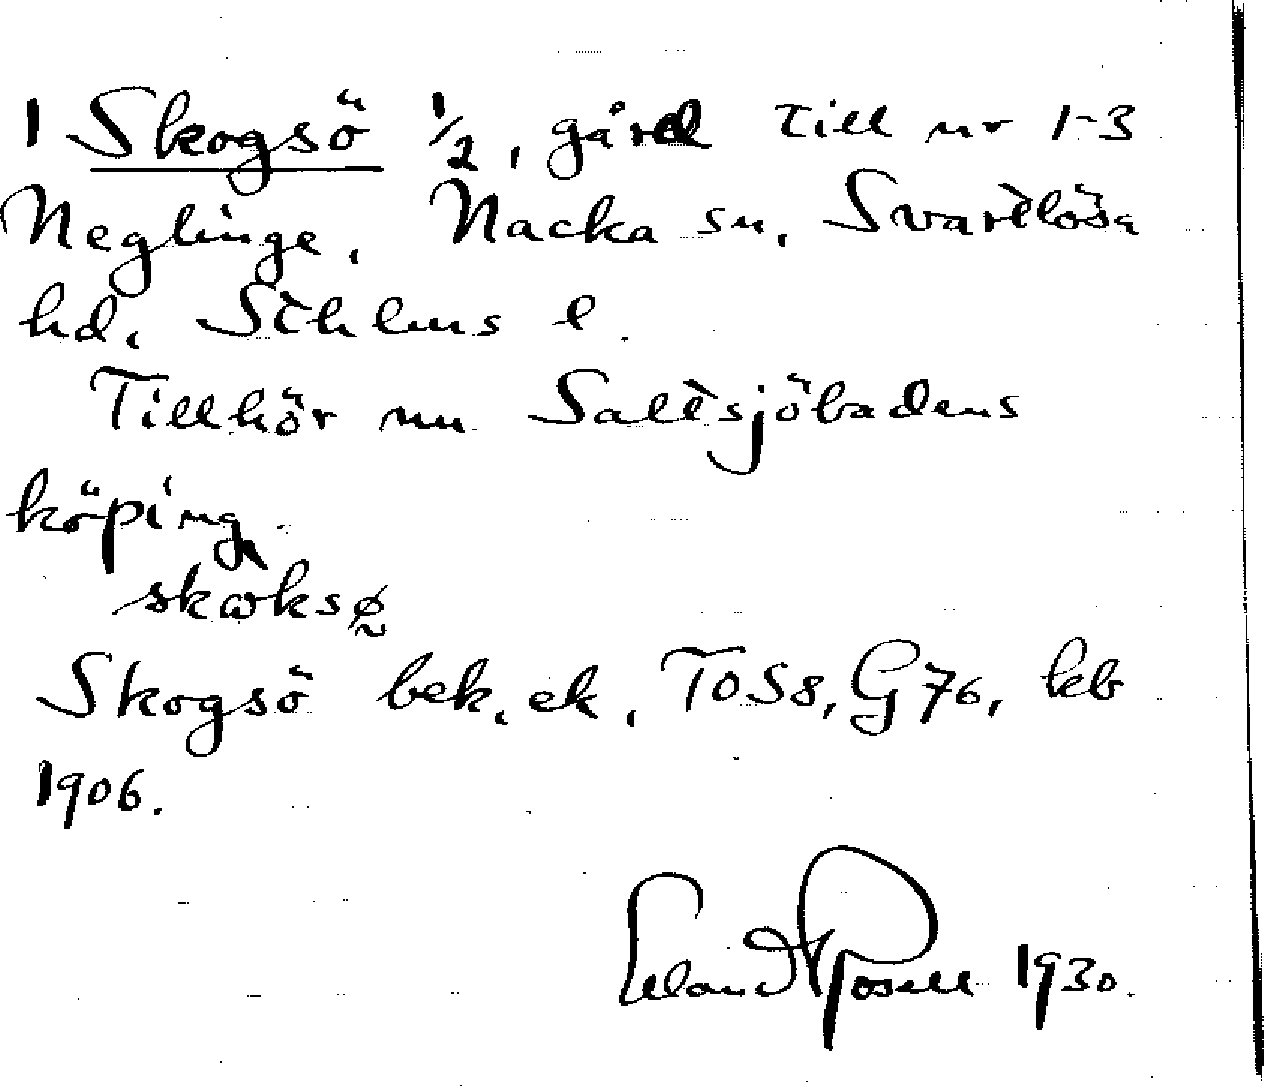 1 Skogsö 1/2, gård till nr 1-3
Neglinge, Nacka sn, Svartlösa
hd, Sthlms l.
Tillhör nu Saltsjöbadens
köping.
skωksø̰
Skogsö bek. ek, TOS8, G76, kb
1906.
Erland Rosell 1930.